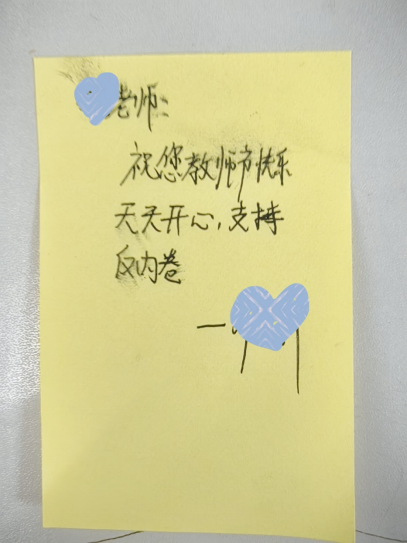 老师:
祝您教师节快乐
天天开心,支持
反内卷